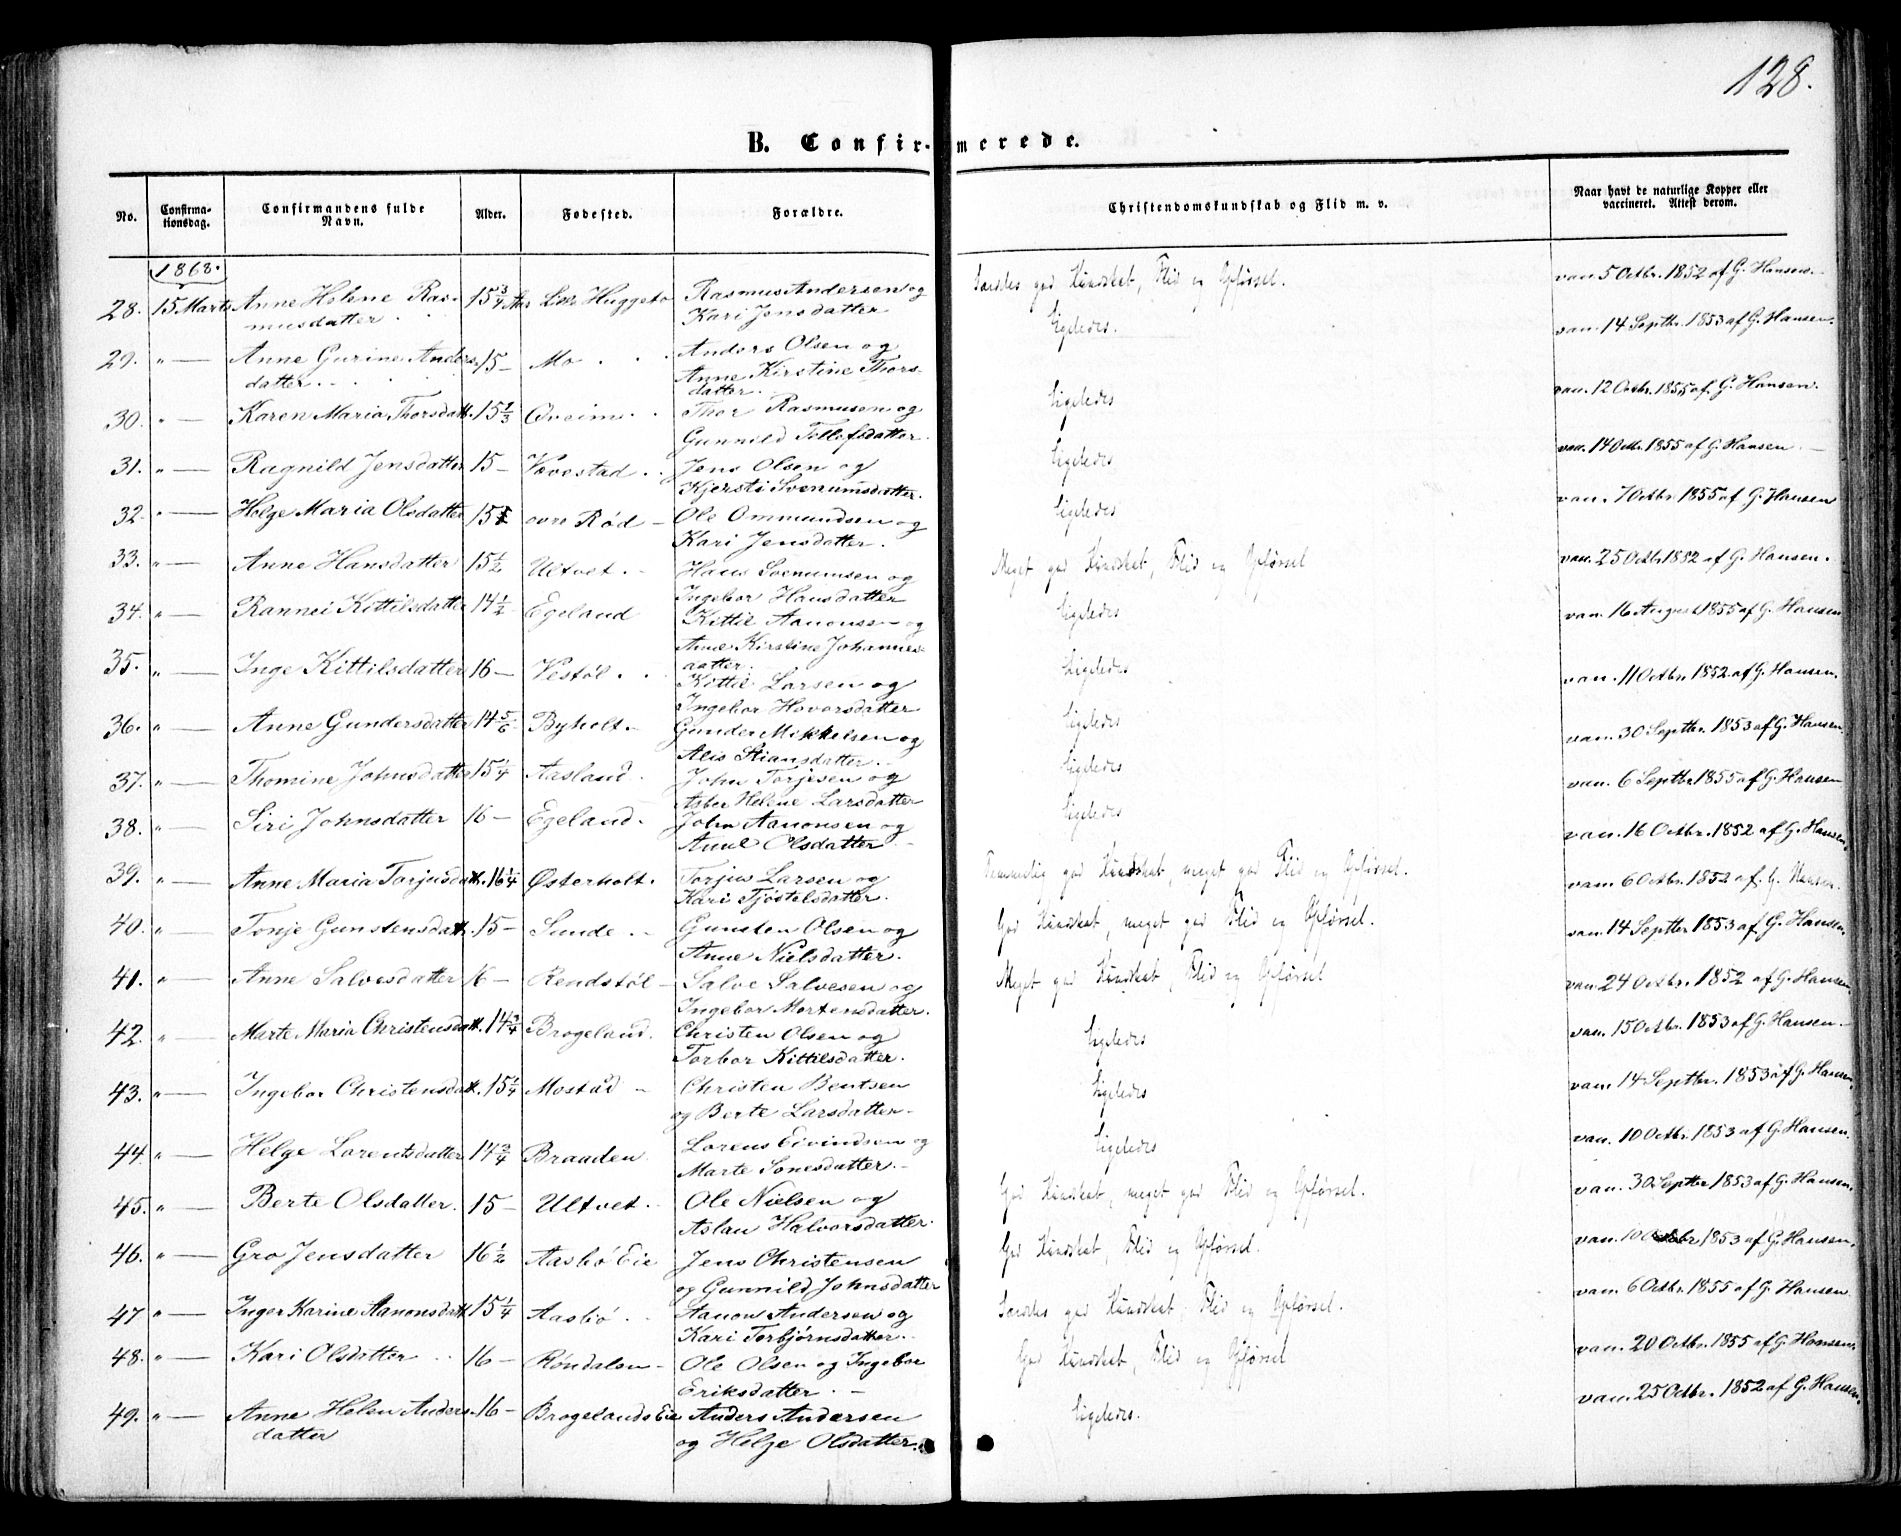 128.
B. Confir- merede.
No. Confirma-tionsdag. Confirmandens fulde Navn. Alder. Fødested. Forældre. Christendomskundskab og Flid m. v. Naar havt de naturlige Kopper eller vaccineret. Attest derom.
1868.
28. 15 Marts Anne Helene Ras- 15 3/4 Aar Lille Huggebo Rasmus Andersen og Særdeles god Kundskab, Flid og Opførsel. vac. 5 Octbr. 1852 af G. Hansen.
musdatter Kari Jensdatter
29. " — Anne Gurine Anders 15 — Mo Anders Olsen og Ligeledes. vac. 14 Septbr. 1853 af G. Hansen.
datter. Anne Kirstine Thors-
datter.
30. " — Karen Maria Thorsdatt. 15 2/3 Qveim Thor Rasmusen og Ligeledes vac. 12 Octbr. 1855 af G. Hansen.
Gunnild Tellefsdatter.
31. " — Ragnild Jensdatter 15 — Vævestad Jens Olsen og Ligeledes vac. 14 Octbr. 1855 af G. Hansen.
Kjersti Svenumsdatter.
32. " — Helge Maria Olsdatter 15 ovre Rød — Ole Ommundsen og Ligeledes vac. 7 Octbr. 1855 af G. Hansen
Kari Jensdatter.
33. " — Anne Hansdatter 15 1/2 Ultvet. Hans Svenumsen og Meget god Kundskab, Flid og Opførsel vac. 25 Octbr 1852 af G. Hansen.
Ingebor Hansdatter
34. " — Rannei Kittilsdatter 14 1/2 Egeland Kittil Aanonse — og Ligeledes vac. 16 August 1855 af G. Hansen
Anne Kirstine Johannes-
datter.
35. " — Inge Kittilsdatter 16 — Vestøl. Kittil Larsen og Ligeledes vac. 11 Octbr. 1852 af G. Hansen.
Ingebor Hovorsdatter
36. " — Anne Gundersdatter 14 5/6 Byholt. Gunder Mikkelsen og Ligeledes vac. 30 Septbr. 1853 af G. Hansen.
Alis Stiansdatter.
37. " — Thomine Johnsdatter 15 1/4 Aasland. John Torjesen og Ligeledes vac. 6 Septbr 1855 af G. Hansen
Asber Helene Larsdatter
38. " — Siri Johnsdatter 16 — Egeland. John Aanonsen og Ligeledes vac. 16 Octbr. 1852 af G. Hansen.
Anne Olsdatter
39. " — Anne Maria Torjusdatt. 16 1/4 Østerholt. Torjus Larsen og Temmelig god Kundskab, meget god Flid og Opførsel. vac. 6 Octbr. 1852 af G. Hansen.
Kari Tjøstelsdatter.
40. " — Tonje Gunstensdatt. 15 — Sunde Gunsten Olsen og God Kundskab, meget god Flid og Opførsel. vac. 14 Septbr 1853 af G. Hansen.
Anne Nielsdatter.
41. " — Anne Salvesdatter 16 — Rendstøl — Salve Salvesen og Meget god Kundskab, Flid og Opførsel vac. 24 Octbr. 1852 af G. Hansen.
Ingebor Mortensdatter.
42. " — Marte Maria Christensdatt. 14 3/4 Brogeland. Christen Olsen og Ligeledes vac. 15 Octbr. 1853 af G. Hansen.
Torbor Kittilsdatter.
43. " — Ingebor Christensdatt. 15 1/4 Mostad — Christen Bentsen Ligeledes vac. 14 Septbr. 1853 af G. Hansen.
og Berte Larsdatter.
44. " — Helge Lorentsdatter 14 3/4 Braaden. Lorens Eivindsen og Ligeledes vac. 10 Octbr. 1853 af G. Hansen.
Marte Sonesdatter.
45. " — Berte Olsdatter. 15 — Ultvet. Ole Nielsen og God Kundskab, meget god Flid og Opførsel. vac. 30 Septbr 1853 af G. Hansen.
Aslau Halvorsdatter.
46. " — Gro Jensdatter 16 1/2 Aasbø Eie Jens Christensen God Kundskab, Flid og Opførsel. vac. 10 Octbr. 1853 af G. Hansen.
og Gunnild Johnsdatter
47 " — Inger Karine Aanonsdatt. 15 1/4 Aasbø. Aanon Andersen og Særdeles god Kundskab, Flid og Opførsel. vac. 6 Octbr. 1855 af G. Hansen.
Kari Torbjørnsdatter.
48. " — Kari Olsdatter 16 — Røndalen — Ole Olsen og Ingebor God Kundskab, Flid og Opførsel vac. 20 Octbr. 1855 af G. Hansen.
Eriksdatter.
49. " — Anne Helen Anders. 16 — Brogelands Eie Anders Andersen Ligeledes. vac. 25 Octbr. 1852 af G. Hansen.
datter og Helge Olsdatter.